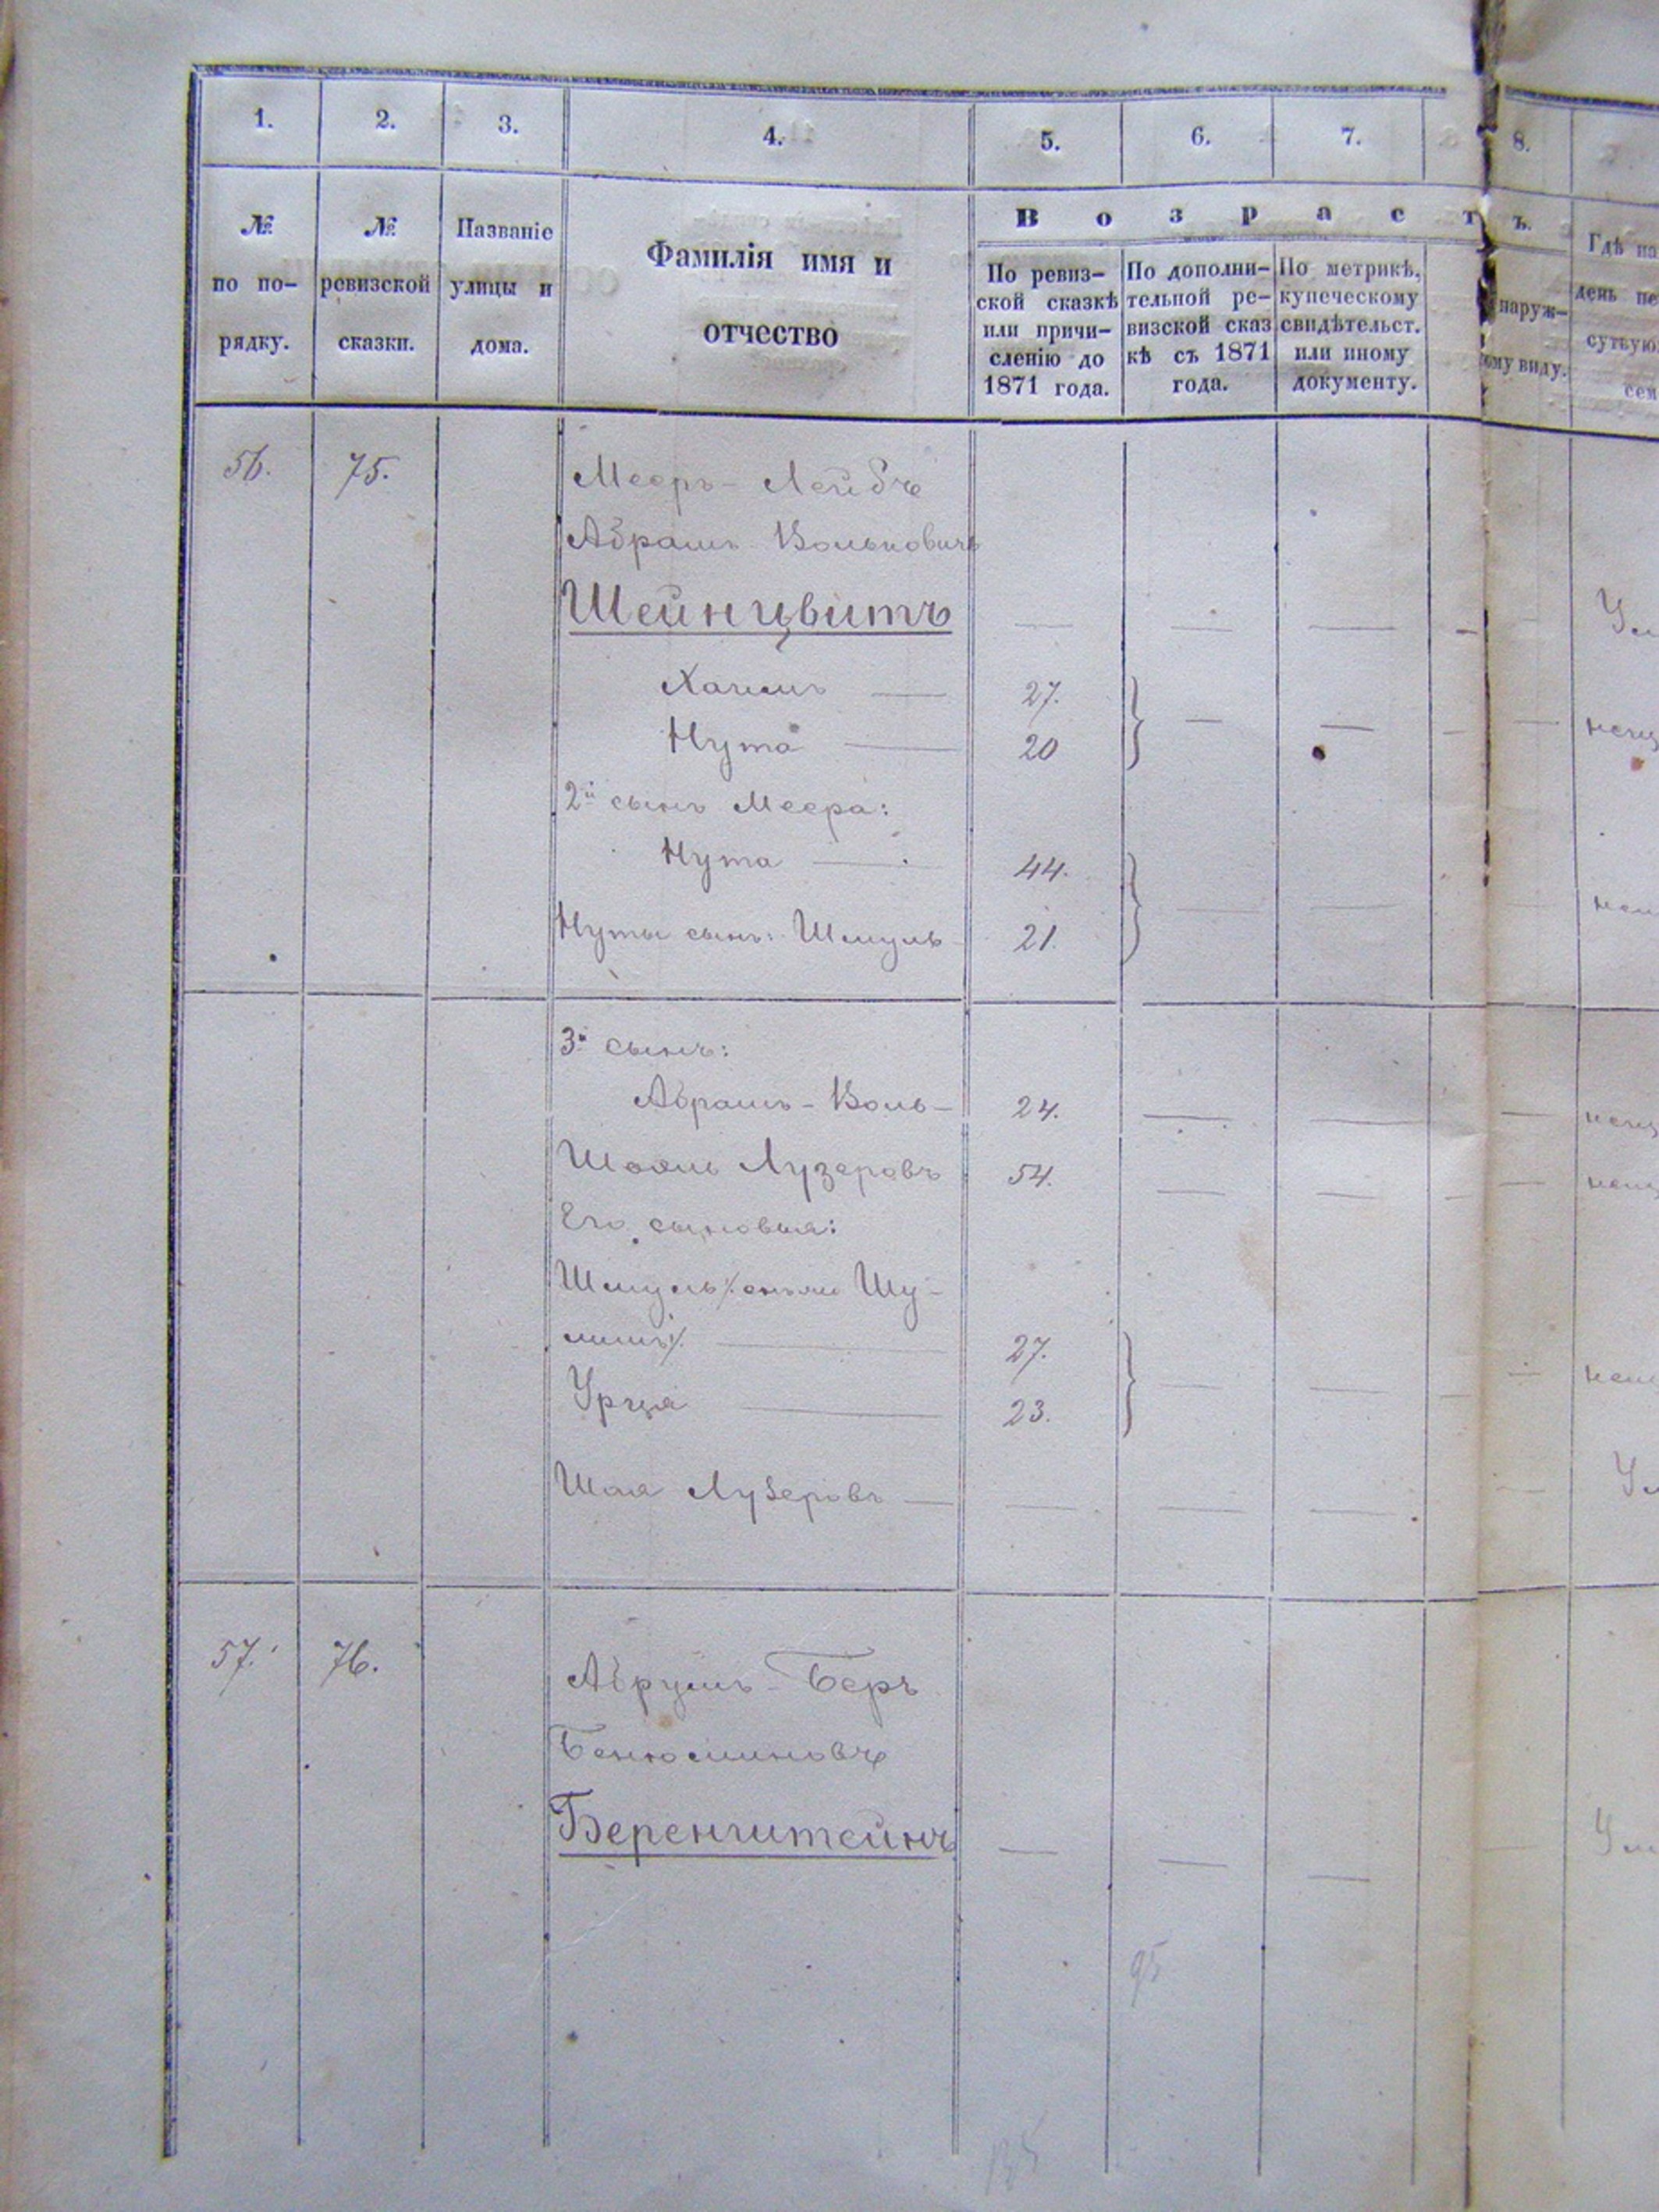 1. 2. 3. 4. 5. 6. 7. 8.
№ по по-рядку.
№ ревизской сказки.
Названіе улицы и дома.
Фамилія имя и
отчество
Возрастъ.
По ревиз-
ской сказкѣ
или причи-
сленію до
1871 года.
По дополни-
тельной ре-
визской сказ
кѣ съ 1871
года.
По метрикѣ,
купеческому
свидѣтельст.
или иному
документу.
наруж-
ому виду.
Гдѣ на
день пе
сутвую
сем
56. 75. Мееръ-Лейбъ
Абрамъ Вольковичъ
Шейнцвитъ — — — —
Хаимъ — 27. — —
Нута — 20
2й сынъ Меера:
Нута — 44.
Нуты сынъ: Шмуль 21. — —
3й сынъ:
Абрамъ-Воль- 24. — —
Шоэль Лузеровъ 54. — —
Его сыновья:
Шмуль /: онъ-же Шу-
лимъ :/ — 27.
Урця — 23. — —
Шая Лузеровъ — — — —
57. 76. Абрумъ-Беръ
Бенюминовъ
Беренштейнъ — — —
95